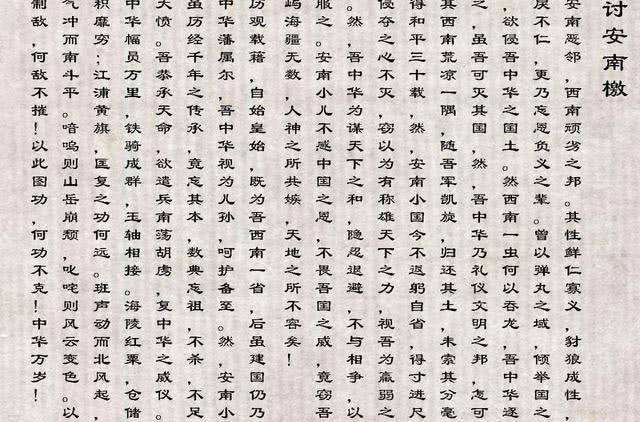 讨安南檄
安南恶邻，西南顽劣之邦。其性鲜仁寡义，豺狼成性，
戾不仁，更乃忘恩负义之辈。曾以弹丸之域，倾举国之
，欲侵吾中华之国土。然西南一虫何以吞龙，吾中华逐
之，虽吾可灭其国，然，吾中华乃礼仪文明之邦，怎可
其西南荒凉一隅，随吾军凯旋，归还其土，未索其分毫
得和平三十载，然，安南小国今不返躬自省，得寸进尺
侵夺之心不灭，窃以为有称雄天下之力，视吾为羸弱之
然。吾中华为谋天下之和，隐忍退避，不与相争，以
服之。安南小儿不感中国之恩，不畏吾国之威，竟窃吾
屿海疆无数，人神之所共嫉，天地之所不容矣！
历观载籍，自始皇始，既为吾西南一省，后虽建国仍乃
中华藩属尔，吾中华视为儿孙，呵护备至。然，安南小
虽历经千年之传承，竟忘其本，数典忘祖，不杀，不足
天愤。吾恭承天命，欲遣兵南荡胡虏，复中华之威仪。
中华幅员万里，铁骑成群，玉轴相接。海陵红粟，仓储
积靡穷；江浦黄旗，匡复之功何远。班声动而北风起，
气冲而南斗平。喑呜则山岳崩颓，叱咤则风云变色。以
制敌，何敌不摧！以此图功，何功不克！中华万岁！